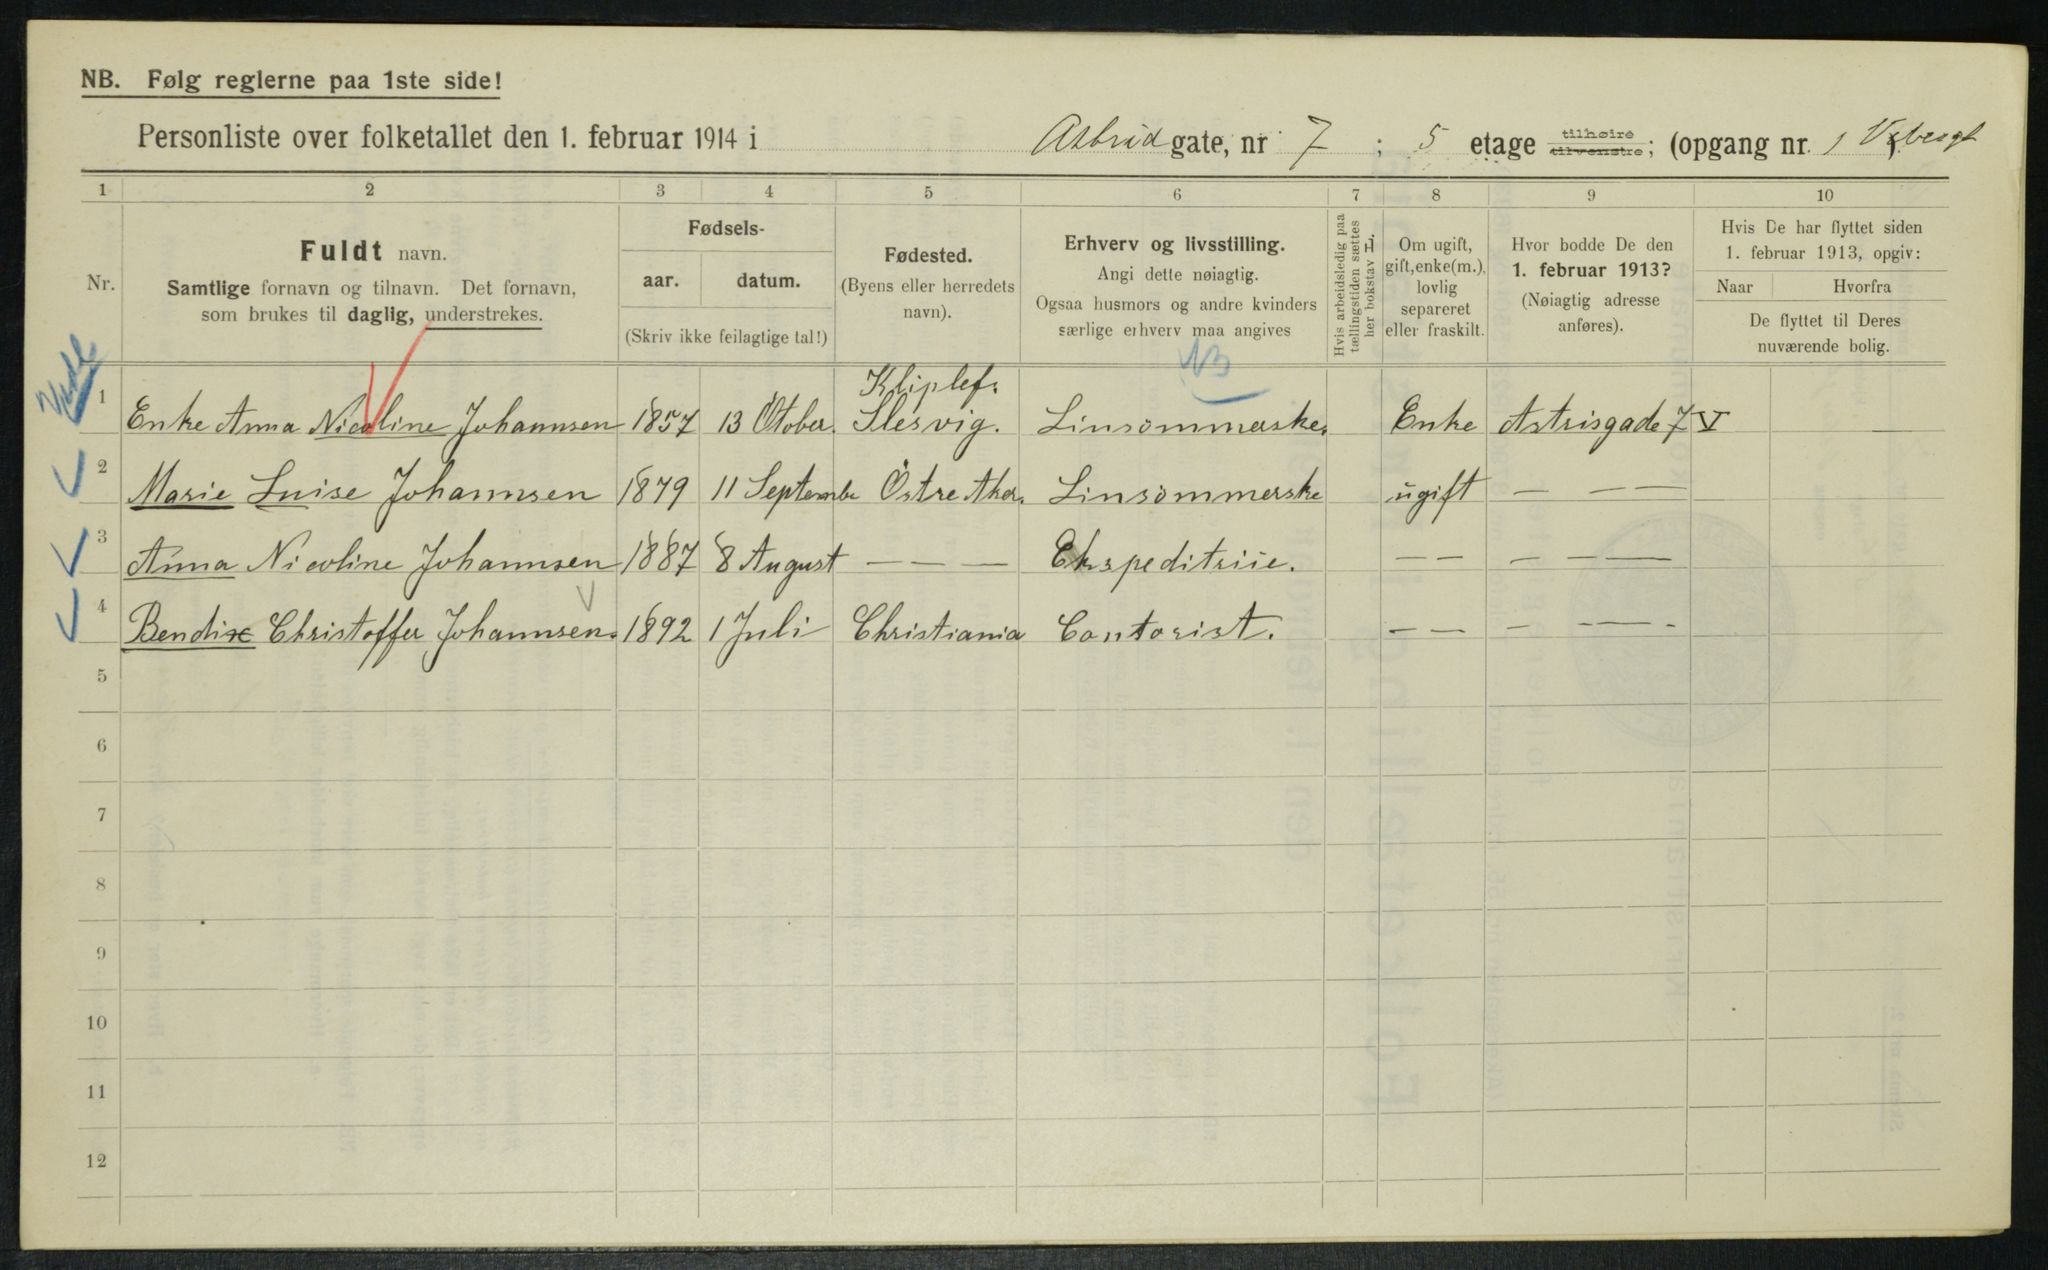 NB. Følg reglerne paa 1ste side!
Personliste over folketallet den 1. februar 1914 i Astrid gate, nr 7 ; 5 etage tilhøire tilvenstre; (opgang nr. 1
1 2 3 4 5 6 7 8 9 10
Nr.
Fuldt navn.
Samtlige fornavn og tilnavn. Det fornavn,
som brukes til daglig, understrekes.
Fødsels-
aar. datum.
(Skriv ikke feilagtige tal!)
Fødested.
(Byens eller herredets
navn).
Erhverv og livsstilling.
Angi dette nøiagtig.
Ogsaa husmors og andre kvinders
særlige erhverv maa angives
Hvis arbeidsledig paa
tællingstiden sættes
her bokstav L.
Om ugift,
gift, enke(m.),
lovlig
separeret
eller fraskilt.
Hvor bodde De den
1. februar 1913?
(Nøiagtig adresse
anføres).
Hvis De har flyttet siden
1. februar 1913, opgiv:
Naar Hvorfra
De flyttet til Deres
nuværende bolig.
NB
1 Enke Anna Nicoline Johannsen 1857 13 Otober. Kliplef. Slesvig. Linsömmerske. Enke Astrisgade 7 V
2 Marie Luise Johannsen 1879 11 Septembr Östre Aker. Linsömmerske ugift — — —
3 Anna Nicoline Johannsen 1887 8 August — — — Ekspeditriie. — — — — —
4 Bendix Christoffer Johannsen. 1892 1 Juli Christiania Contorist. — — — — -
5
6
7
8
9
10
11
12